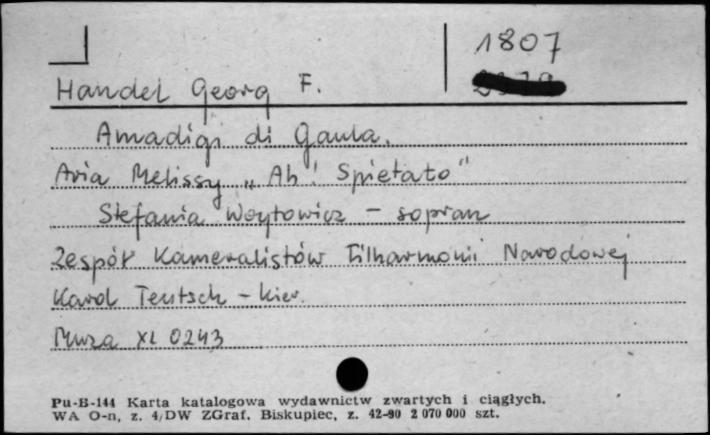 1807
Handel Georg F.
Amadigi di Gaula.
Aria Melissy „Ah! Spietato"
Stefania Woytowicz – sopran
Zespół Kameralistów Filharmonii Narodowej
Karol Teutsch – kier.
Muza XL 0243
Pu-B-144 Karta katalogowa wydawnictw zwartych i ciągłych.
WA O-n, z. 4/DW ZGraf. Biskupiec, z. 42-80 2 070 000 szt.